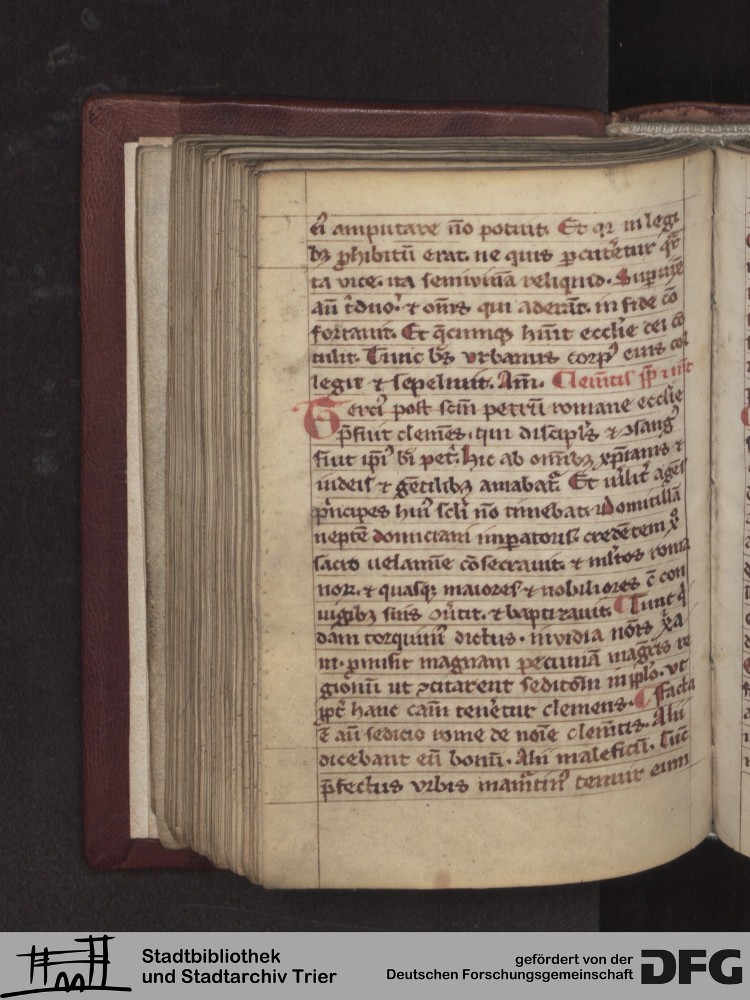 ei amputare nō potuit. Et qꝛ in legi
bꝫ ꝓhibitū erat. ne quis ꝑcuteretur qͣr
ta vice. ita semiviuā reliquid. Supuix̄
aū t̄duo. ⁊ om̄s qui aderāt. in fide cō
fortauit. Et q̄cumqꝫ huīt eccl'ie dei cō
tulit. Tunc bt̄s vrbanus corpꝰ eius col
legit ⁊ sepeliuit. Am̄. Clemētis pp̄ ⁊ m̄r
Tercī post sc̄m petrū romane eccl'ie
p̄fuit clemēs. qui discipl's ⁊ ꝯsang'
fuit ip̄i' bī pet'. Hic ab om̄ibꝫ xp̄ianis ⁊
iudeis ⁊ gētilibꝫ amabat'. Et vl'it' agēs
p'ncipes huī' scl'i nō timebat. Domitillā
neptē domiciani imꝑatoris credētem xͦ
sacro uelamīe cōsecrauit. ⁊ ml'tos roma
noꝝ. ⁊ quasqꝫ maiores ⁊ nobiliores ē con
iugibꝫ suis ꝯu'tit. ⁊ baptizauit. Tunc q'
dam torquini' dictus. invidia nōis xͣa
ni. ꝓmisit magnam pecuniā mag'tīs re
gionū ut ꝯcitarent seditōm in pp̄lo. vt
ꝓpt' hanc cām tenētur clemens. Facta
ē aū sedicio rome de noīe clemētis. Alii
dicebant eū bonū. Alii maleficū. Tūc
p̄fectus vrbis mam̄tin' tenuit eum
Stadtbibliothek
und Stadtarchiv Trier
gefördert von der
Deutschen Forschungsgemeinschaft
DFG